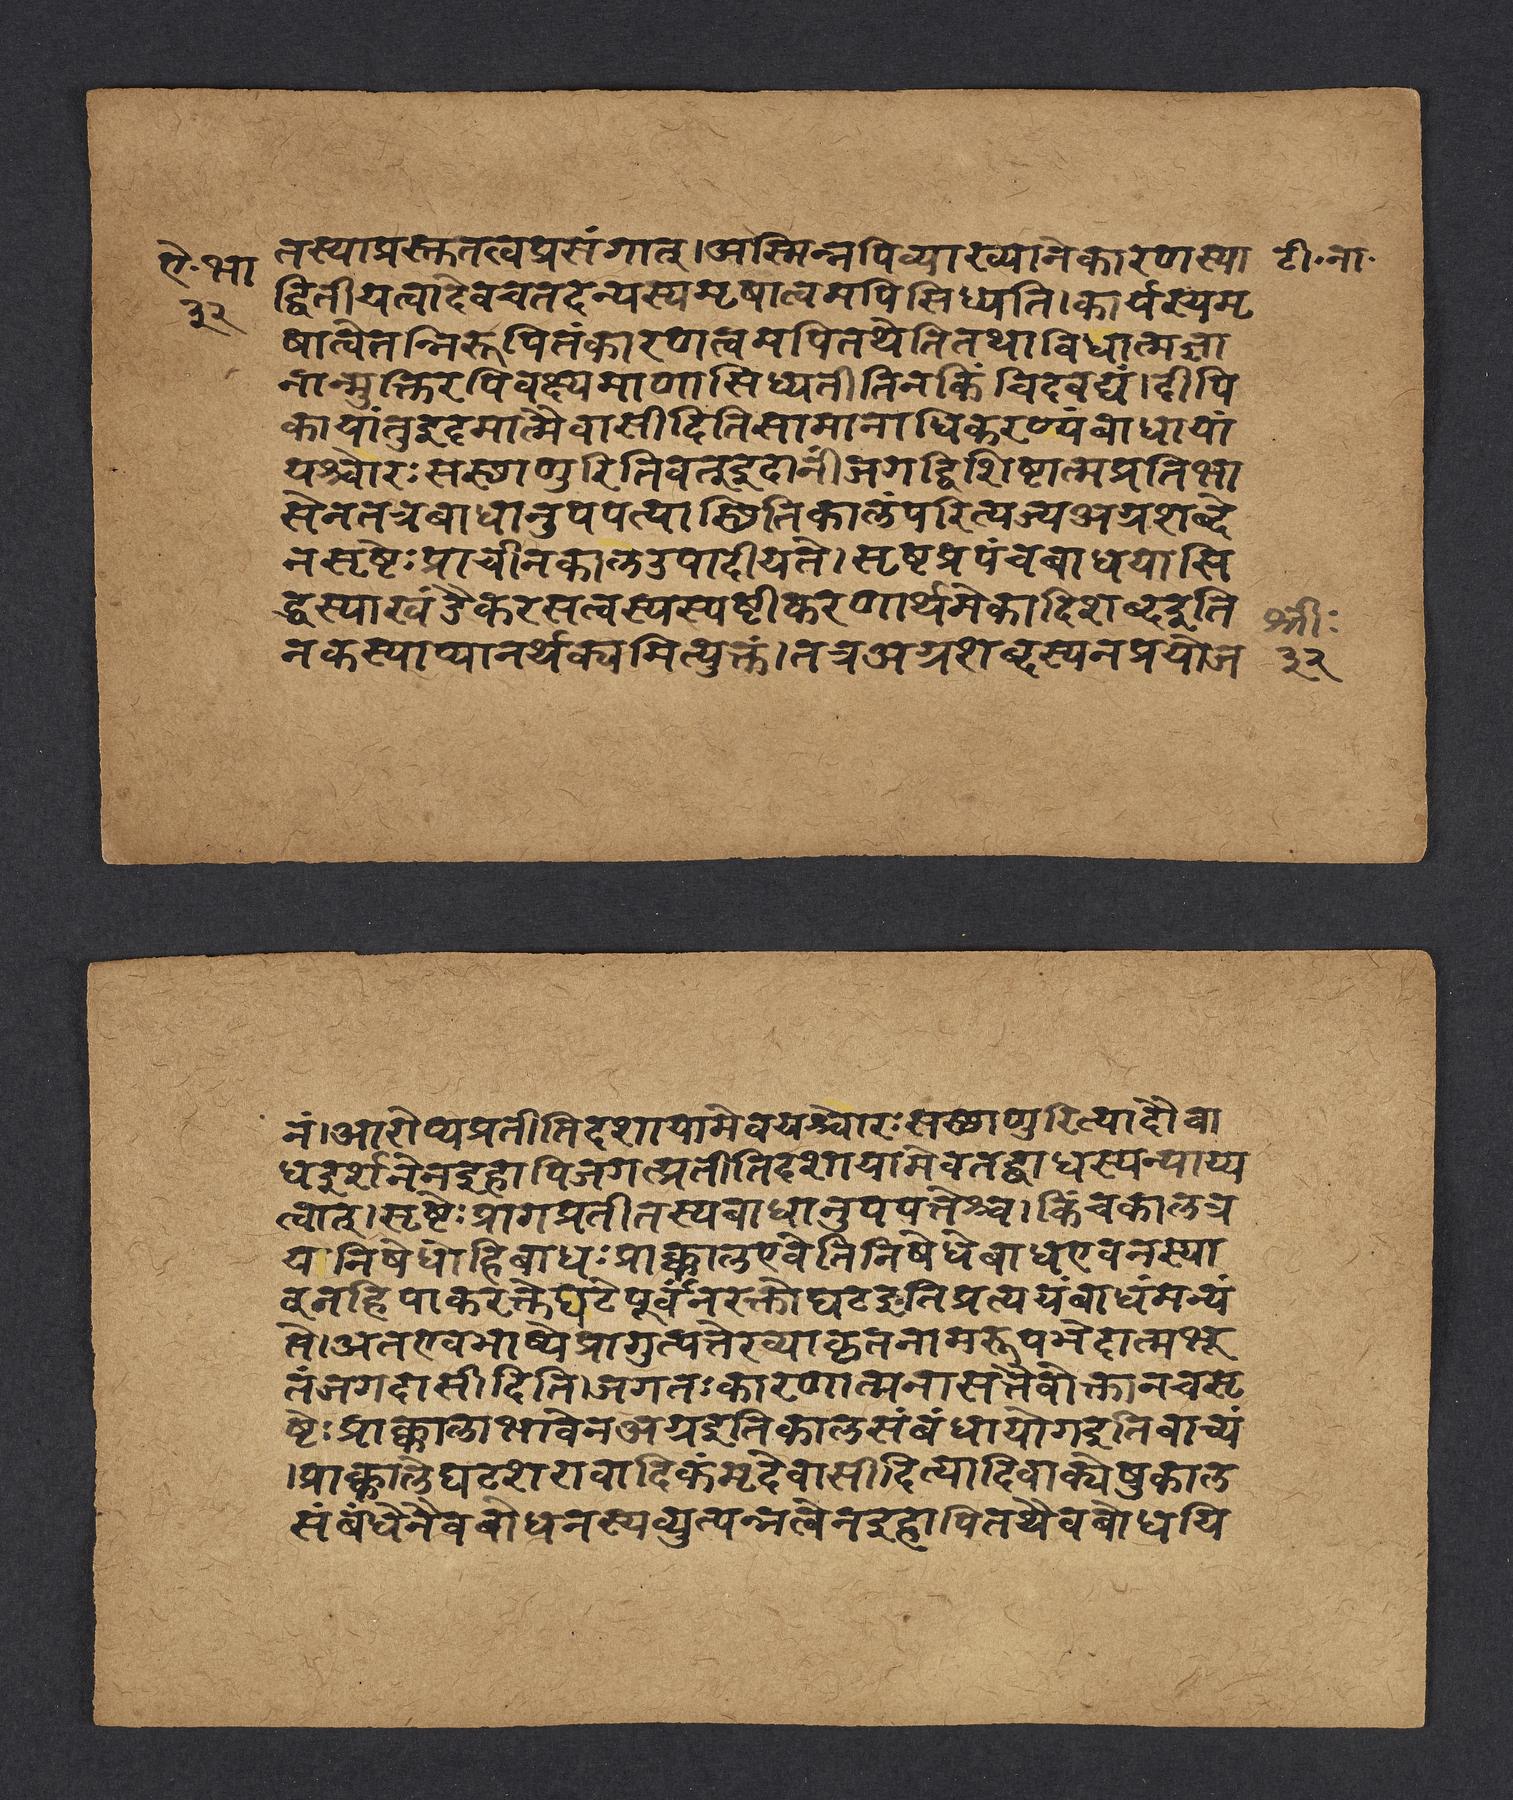 ऐ·भा
३२
टी·ना·
तस्याप्रस्तुतत्वप्रसंगात्।अस्मिन्नपिव्याख्यानेकारणस्या
द्वितीयत्वादेवचतदन्यस्यमृषात्वमपिसिध्यति।कार्यस्यमृ
षात्वेतन्निरूपितंकारणत्वमपितथेतितथाविधात्मज्ञा
नान्मुक्तिरपिवक्ष्यमाणासिध्यतीतिनकिंचिदवद्यं।दीपि
कायांतुइदमात्मैवासीदितिसामानाधिकरण्यंबाधायां
यश्चोरःसस्थाणुरितिवत्इदानींजगद्विशिष्टात्मप्रतिभा
सेनतत्रबाधानुपपत्यास्थितिकालंपरित्यज्यअग्रशब्दे
नसृष्टेःप्राचीनकालउपादीयते।सृष्टप्रपंचबाधयासि
द्धस्याखंडैकरसत्वस्यस्पष्टीकरणार्थमेकादिशब्दइति
नकस्याप्यानर्थक्यमित्युक्तं।तत्रअग्रशब्दस्यनप्रयोज
श्रीः
३२
नं।आरोप्यप्रतीतिदशायामेवयश्चोरःसस्थाणुरित्यादौबा
धदर्शनेनइहापिजगत्प्रतीतिदशायामेवतद्बाधस्यन्याय्य
त्वात्।सृष्टेःप्रागप्रतीतस्यबाधानुपपत्तेश्च।किंचकालत्र
यनिषेधोहिबाधःप्राक्कालएवेतिनिषेधेबाधएवनस्या
न्नहिपाकरक्तेघटेपूर्वंनरक्तोघटइतिप्रत्ययंबाधंमन्यं
ते।अतएवभाष्येप्रागुत्पत्तेरव्याकृतनामरूपभेदात्मभू
तंजगदासीदिति।जगतःकारणात्मनासत्तैवोक्तानचसृ
ष्टेःप्राक्कालाभावेनअग्रइतिकालसंबंधायोगइतिवाच्यं
।प्राक्कालेघटशरावादिकंमृदेवासीदित्यादिवाक्येषुकाल
संबंधेनैवबोधनस्यव्युत्पन्नत्वेनइहापितथैवबोधयि